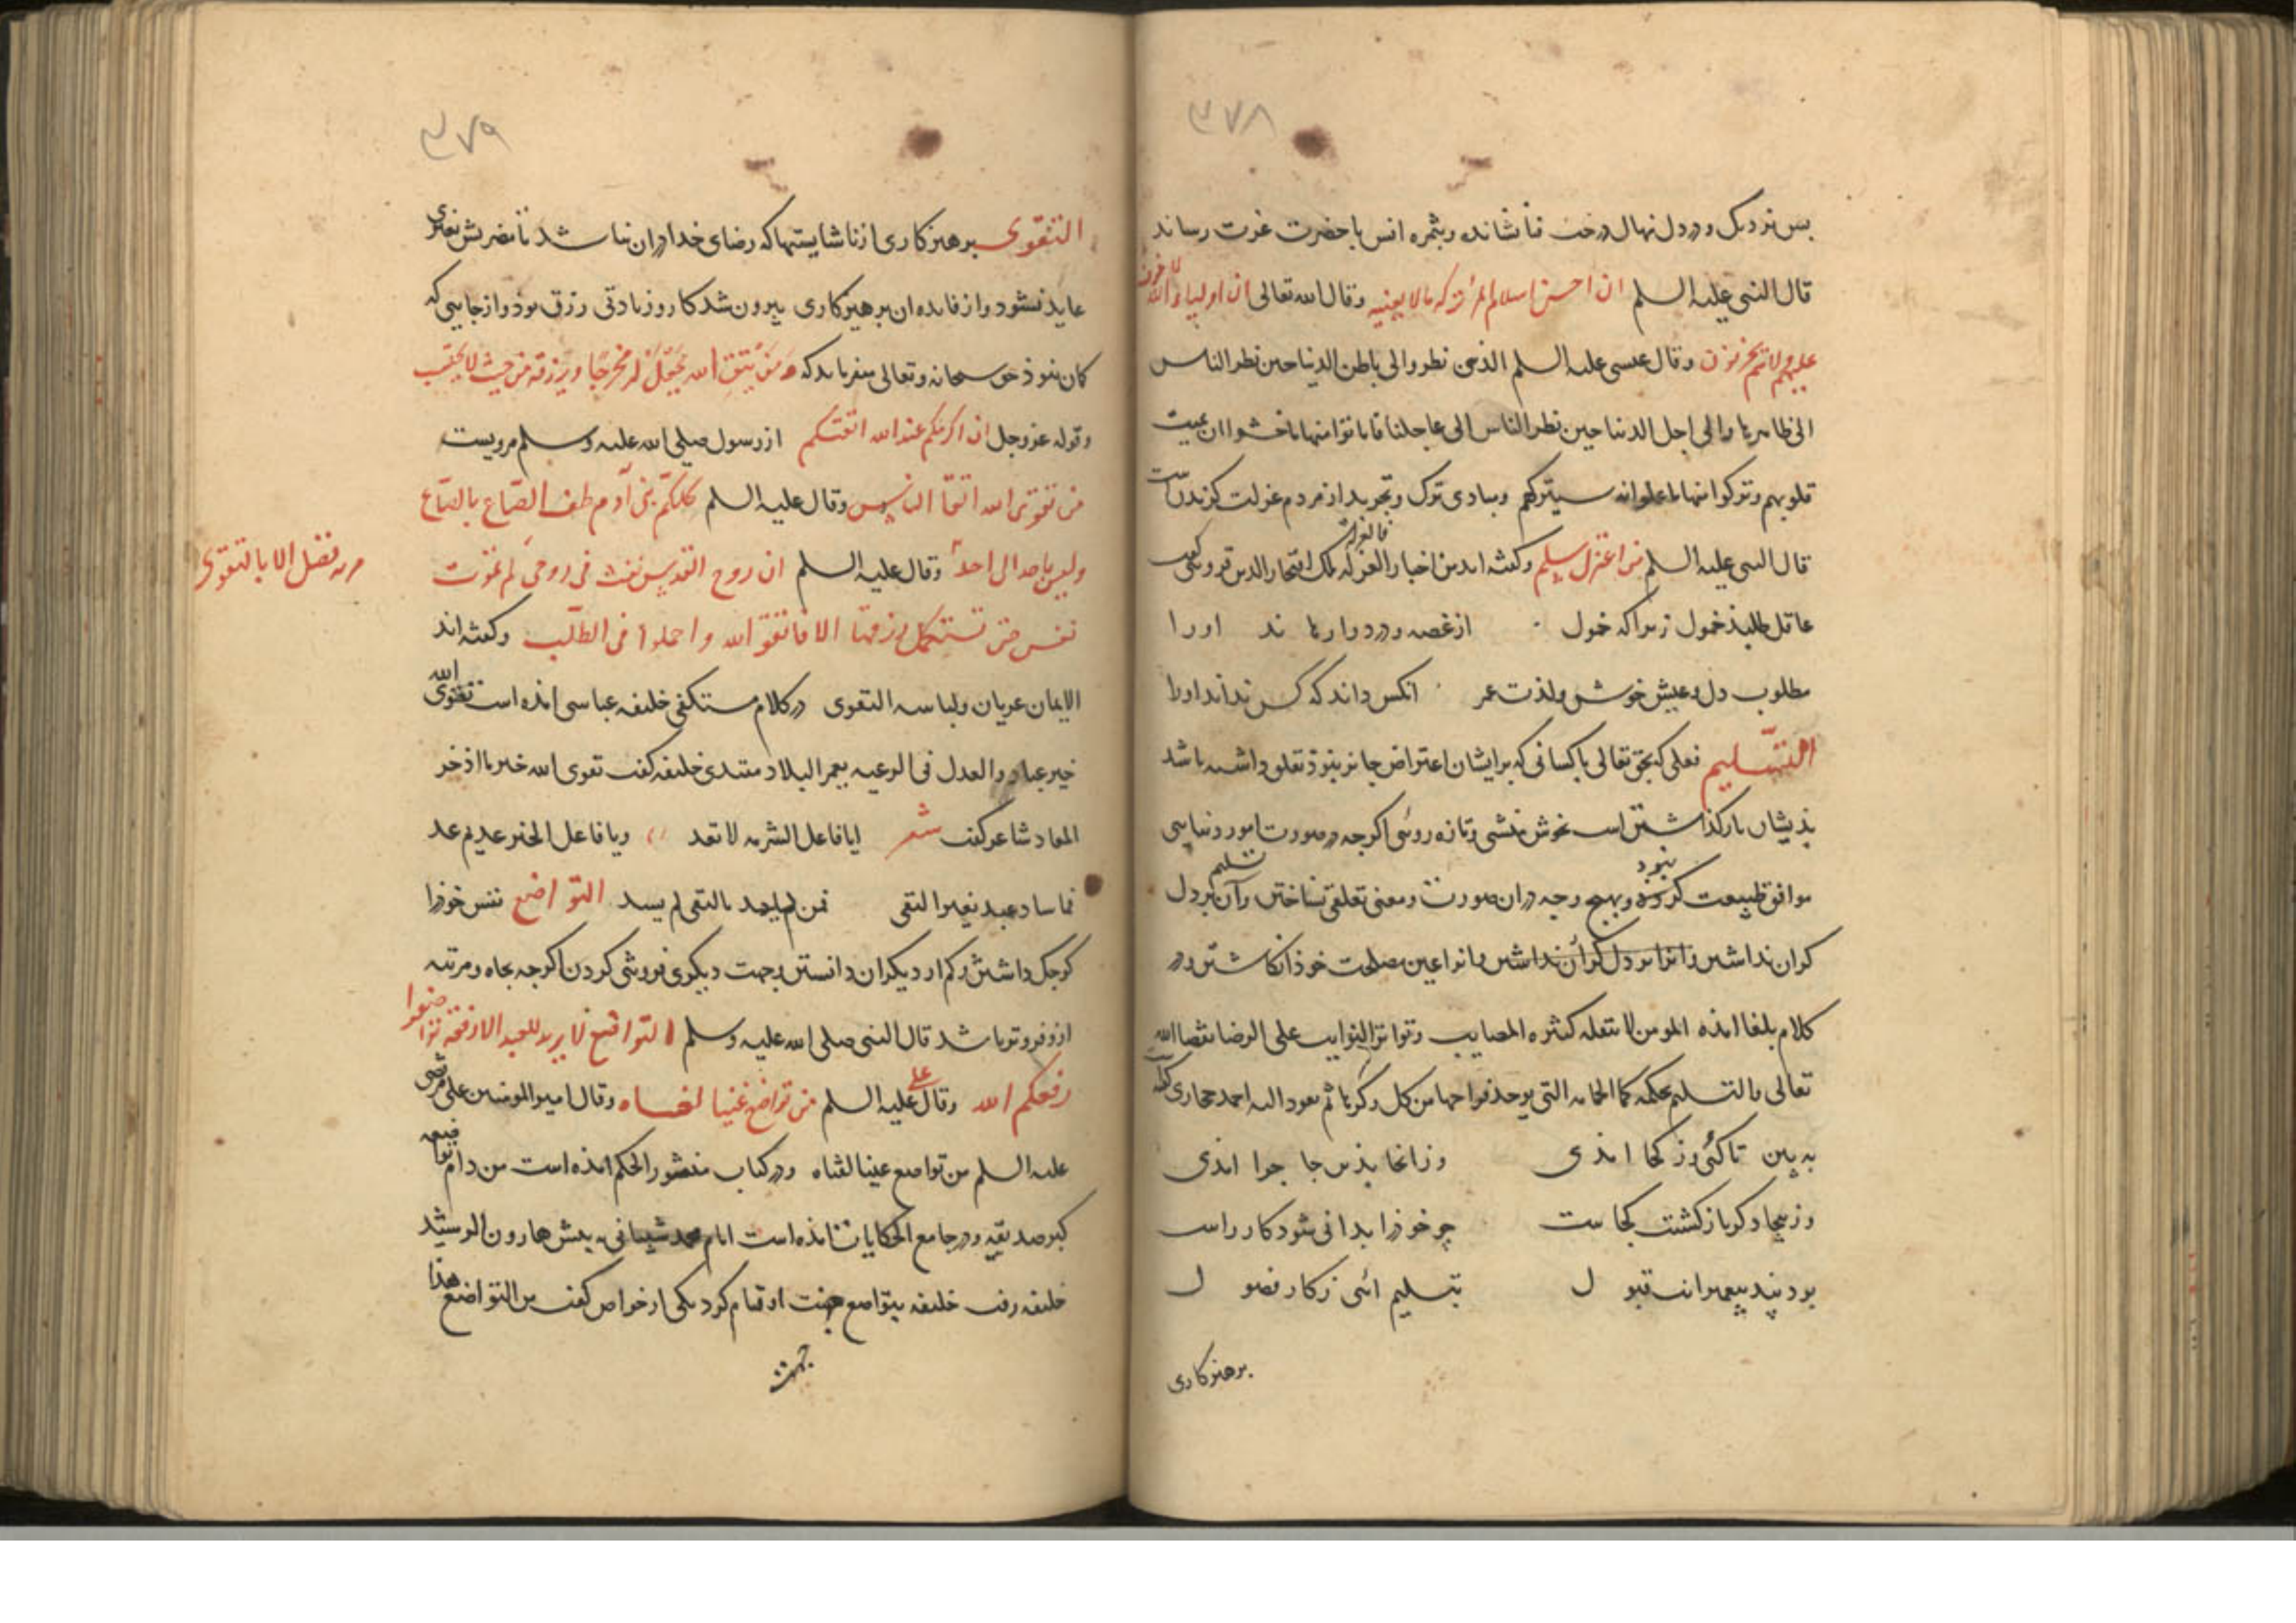 ۳۷۸
بس نزدیک و در دل نهال درخت فنا شانده و بثمره انس با حضرت عزت رساند
قال النبی علیه السلم ان احسن اسلام المرء ترکه مالا یعنیه وقال الله تعالی ان اولیاء الله لا خوف
علیهم ولا هم یحزنون وقال عیسی علیه السلم الذین نظروا الی باطن الدنیا حین نظر الناس
الی ظاهرها والی اجل الدنیا حین نظر الناس الی عاجلنا فاماتوا منها ما خشوا ان یمیت
قلوبهم وترکوا منها ما علموا انه سیترکهم و مبادی ترک و تجرید از مردم عزلت کزیدنست
قال النبی علیه السلم من اعتزل سلم و کفته اند من اخبار العزلة فالعزله ملک افتخار الدین قزوینی کفت
عاقل طلبذ خمول زیرا که خمول از غصه و درد وارهاند اورا
مطلوب دل و عیش خوش ولذت عمر انکس داند که کس نداند اورا
التسلیم فعلی که بحق تعالی با کسانی که بر ایشان اعتراض جایز نبوذ تعلق داشته باشد
بذیشان بازکذاشتن است بخوش منشی و تازه رویی اکرچه در صورت امور دنیایی
موافق طبیعت نبود و بهیچ وجه در ان صورت و معنی تعلقی نساختن و آن تسلیم بر دل
کران نداشتن و انرا بر دل کران نداشتن و انرا عین مصلحت خوذ انکاشتن و در
کلام بلغا امذه المومن لا تنقله کثره المصایب و تواتر النوایب علی الرضا بقضا الله
تعالی و التسلیم بحکمه کما الحمامه التی یوخذ فراخها من کل وکرها ثم تعود الیه احمد حجازی کوید
به بین تا کئی وز کجا امذی وز انجا بذین جا چرا امذی
وز یجا دکر بازکشتت کجاست چو خوذرا بدانی شود کار راست
بود بند پیغمبرانت قبول بتسلیم ائی ز کار فضول
برهیزکاری
۳۷۹
التقوی برهیزکاری از ناشایستها که رضای خدا در ان نباشد تا مضرتش بغیری
عاید نشود و از فایده ان برهیزکاری بیرون شد کار و زیادتی رزق بوذ و از جایی که
کان نبوذ حق سبحانه وتعالی میفرماید که ومن یتق الله یجعل له مخرجا ویرزقه من حیث لا یحتسب
وقوله عز وجل ان اکرمکم عند الله اتقیکم از رسول صلی الله علیه وسلم مرویست
من تقوی الله اتقا الناس وقال علیه السلم کلکم بنی آدم طف الصاع بالصاع
ولیس لاحد الی احد وقال علیه السلم ان روح القدس نفث فی روحی لم تموت
فضل الا بالتقوی
نفس حتی تستکمل رزقها الا فاتقوا الله واجملوا فی الطلب و کفته اند
الایمان عریان ولباسه التقوی در کلام مستکفی خلیفه عباسی امذه است تقوی الله
خیر عباد والعدل فی الرعیه یعمر البلاد مقتدی خلیفه کفت تقوی الله خیر ما اذخر
المعاد شاعر کفت شعر ایا فاعل الشر مه لا تعد ویا فاعل الخیر عد ثم عد
فما ساد عبد بغیر التقی فمن لم یسد بالتقی لم یسد التواضع نفس خوذرا
کوجک داشتن و کم از دیکران دانستن و جهت دیکری فروتنی کردن اکرچه بجاه و مرتبه
ازو فروتر باشد قال النبی صلی الله علیه وسلم التواضع لا یرید للعبد الا رفعة تواضعوا
رفعکم الله وقال علیه السلم من تواضع غنیا لغناه وقال امیرالمومنین علی مرتضی
علیه السلم من تواضع غنیا لغناه و در کتاب منصور الحکم امذه است من دام تواضعه
کبر صدیقه و در جامع الحکایات امذه است امام محمد شیبانی به بیش هارون الرشید
خلیفه رفت خلیفه بتواضع جهت او قیام کرد یکی از خواص کفت من التواضع هذا
جهت